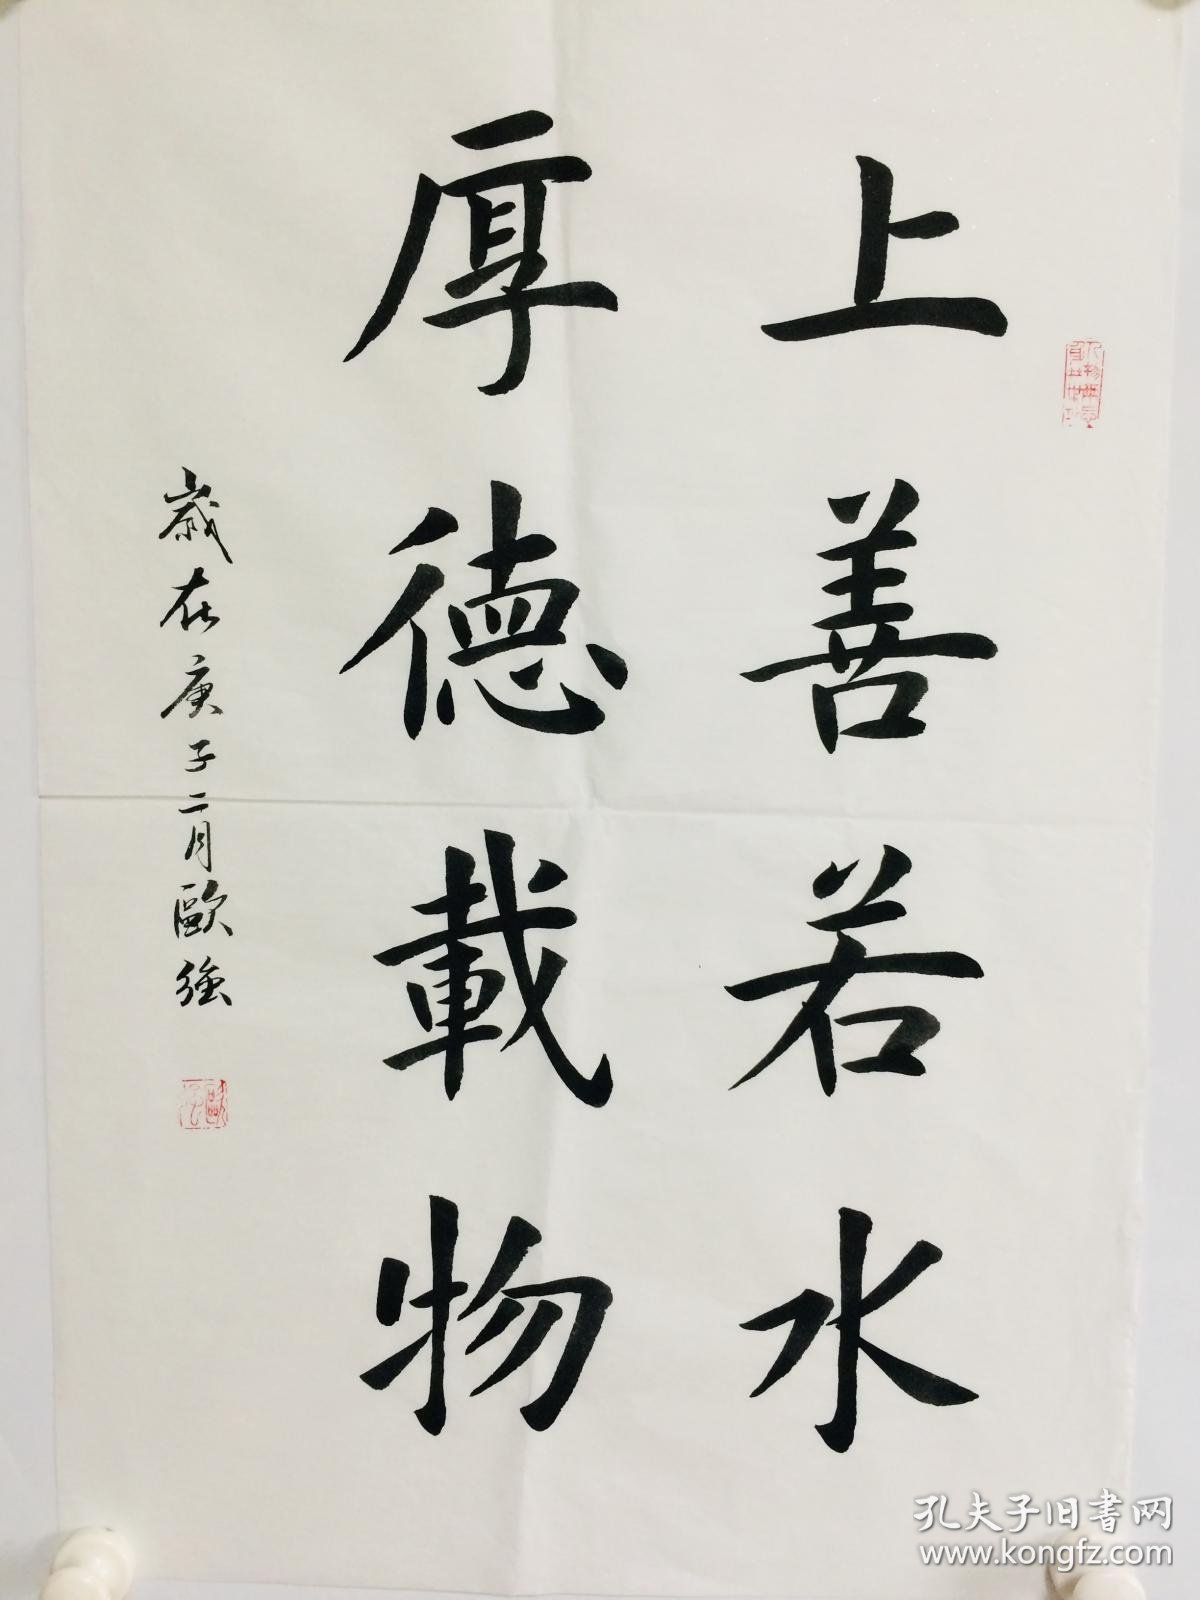 上善若水
厚德載物
歳在庚子二月歐強
孔夫子旧書网
www.kongfz.com